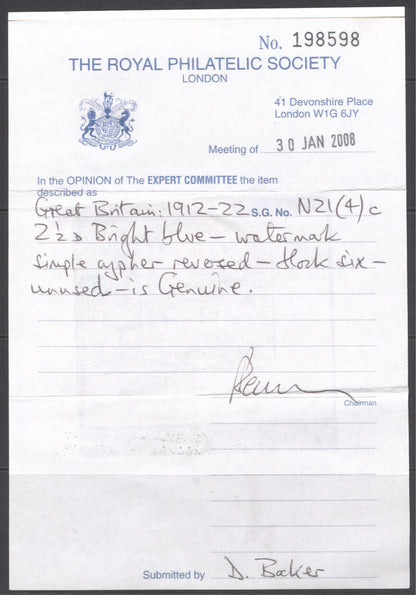 No. 198598
THE ROYAL PHILATELIC SOCIETY
LONDON
41 Devonshire Place
London W1G 6JY
Meeting of 30 JAN 2008
In the OPINION of The EXPERT COMMITTEE the item
described as
Great Britain: 1912-22 S.G. No. N21(4)c
2½D Bright blue - watermark
simple cypher - reversed - block six -
unused - is Genuine.
Chairman
Submitted by D. Baker